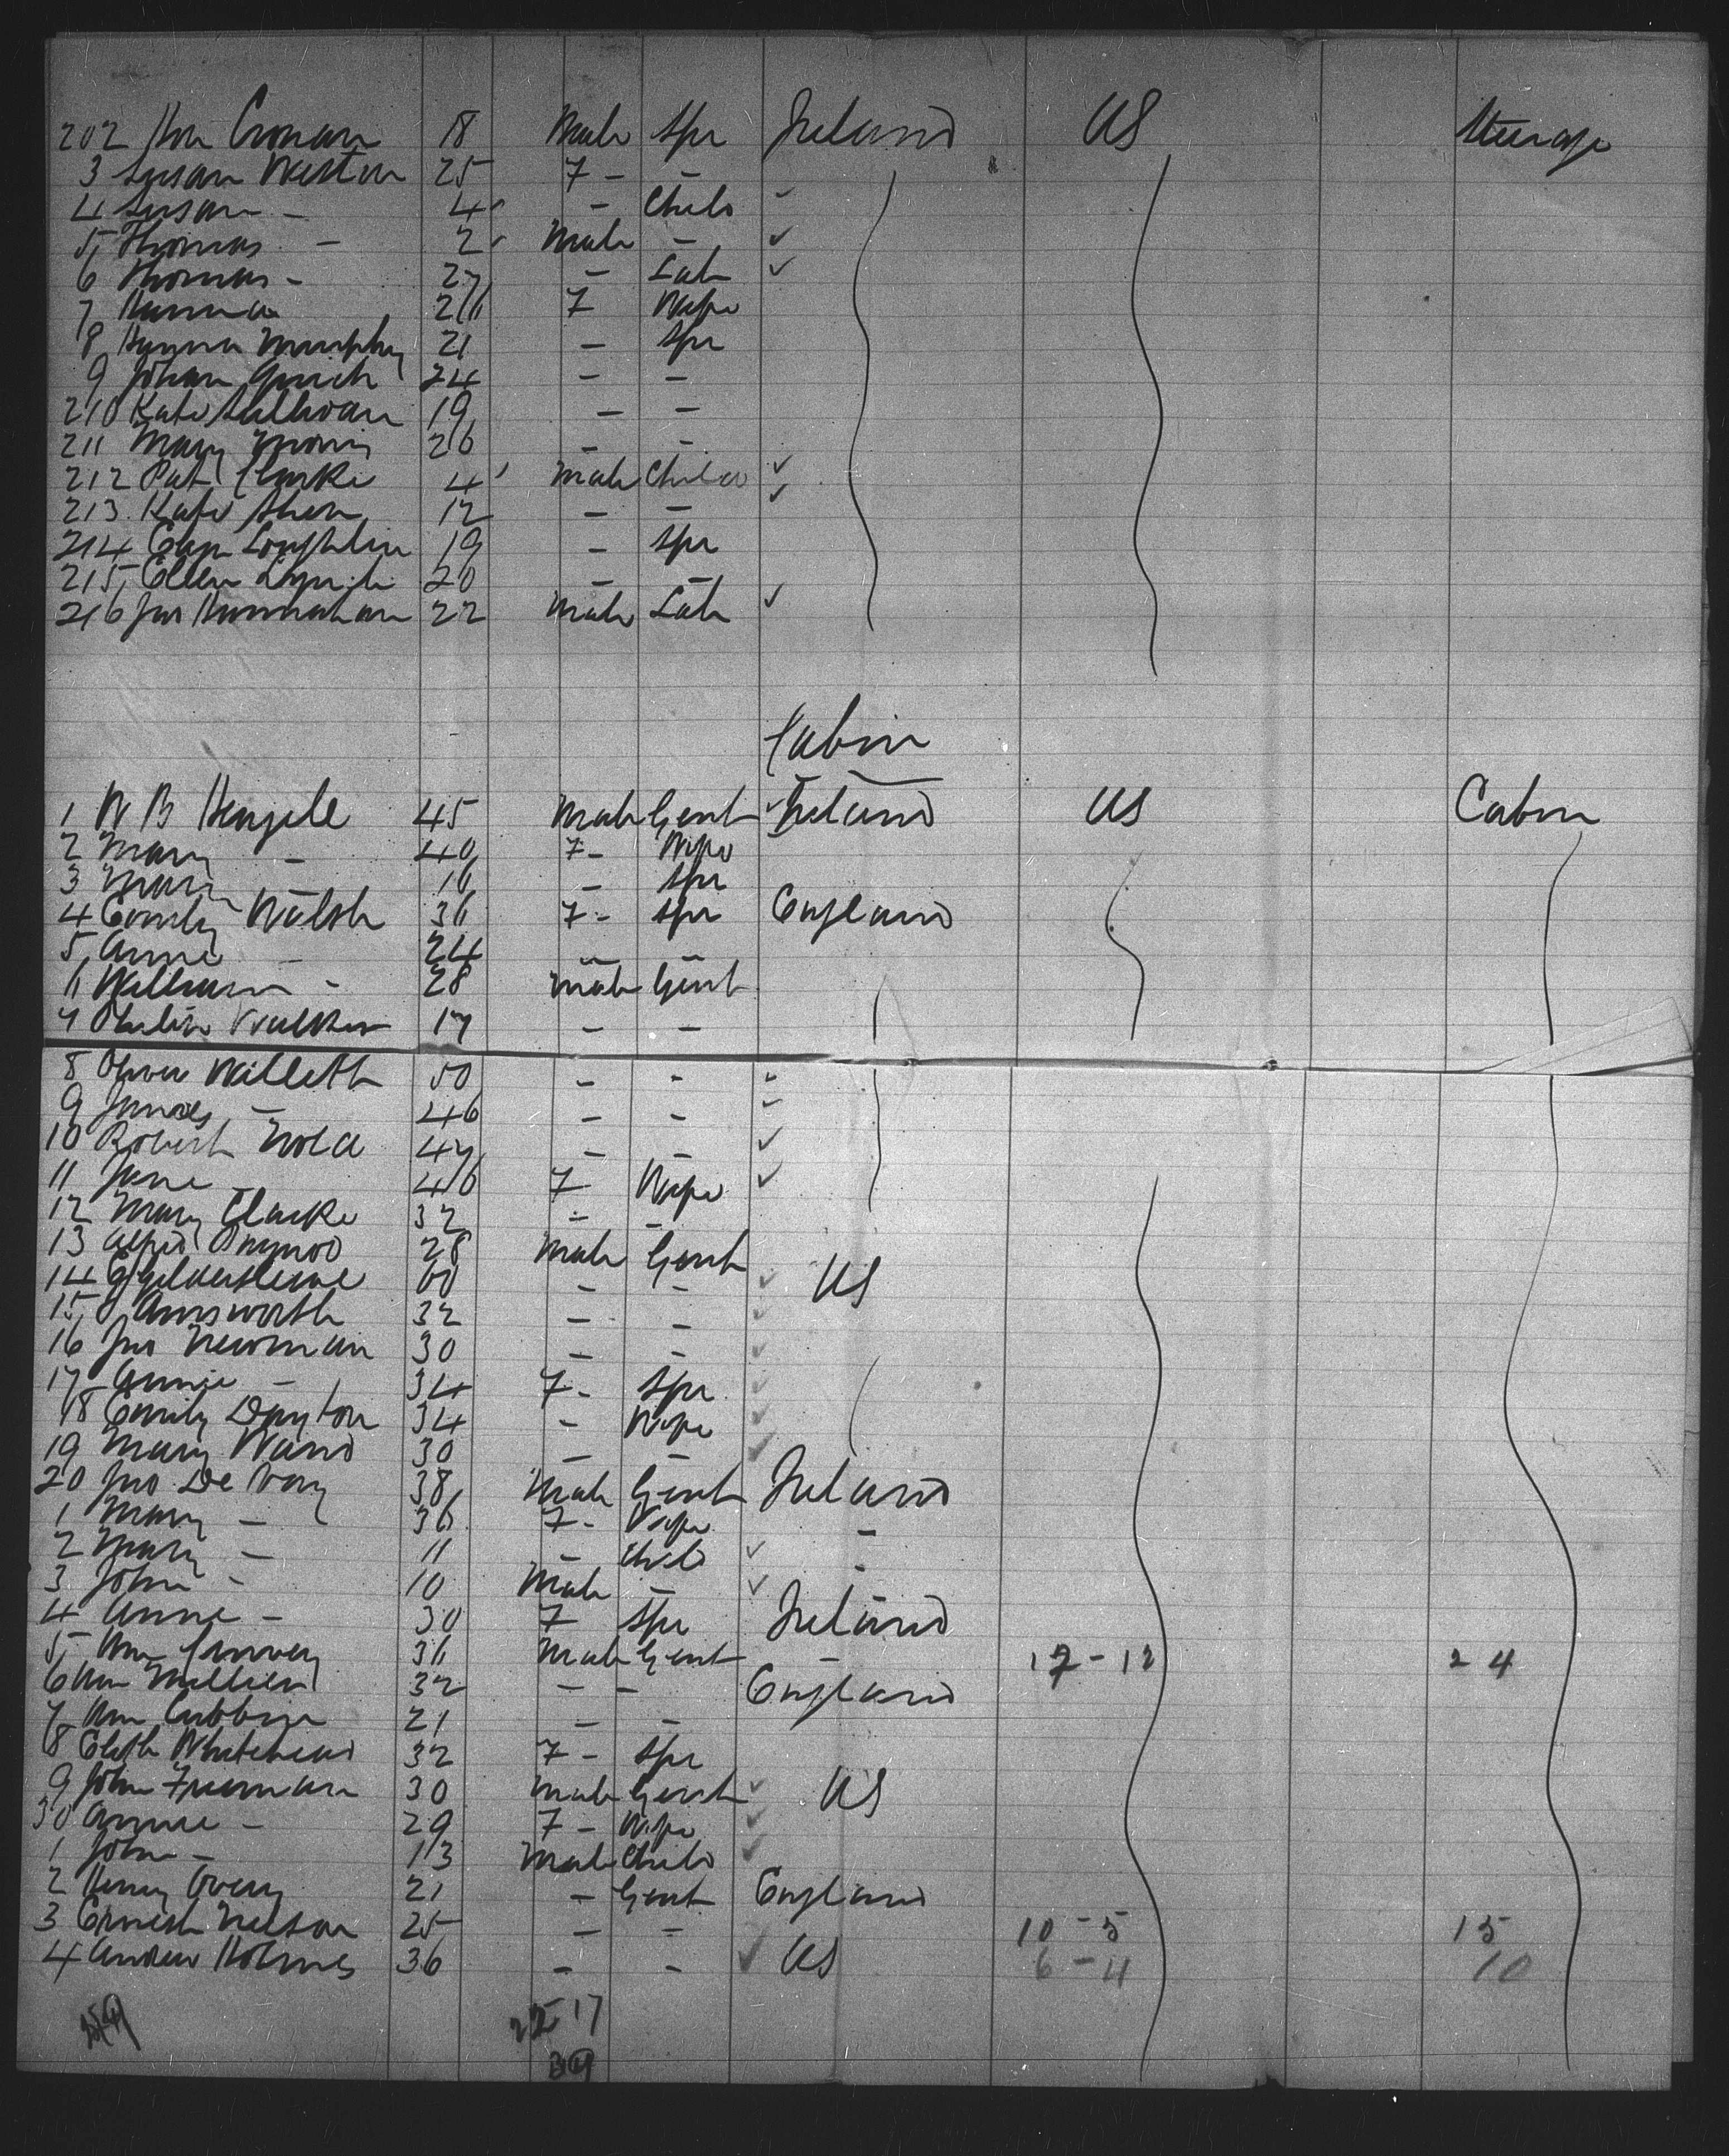 202 Hon Cronan 18 Male Spr Ireland US Steerage
3 Susan Weston 25 F - -
4 Susan - 4 - Child
5 Thomas - 2 Male -
6 Thomas - 27 - Lab
7 Hanna 26 F Wife
8 Hanna Murphy 21 - Spr
9 Johan 24 - -
210 Kate Sullivan 19 - -
211 Mary Morris 26 - -
212 Pat Clarke 4 Male Child
213 Kate Shea 12 - -
214 Loughlin 19 - Spr
215 Ellen Lynch 20 - -
216 Jno Hannrahan 22 Male Lab
Cabin
1 W B 45 Male Gent Ireland US Cabin
2 Mary - 40 F - Wife
3 Mary 16 - Spr
4 Emily Walsh 36 F - Spr England
5 Anne - 24 - -
6 William - 28 Male Gent
7 Walker 17 - -
8 Oliver Willett 50 - -
9 James - 46 - -
10 Robert 47 - -
11 Jane - 46 F Wife
12 Mary Clarke 32 - -
13 Alfred 28 Male Gent
14 G Gildersleeve 60 - - US
15 Ainsworth 32 - -
16 Jno Newman 30 - -
17 Annie - 34 F - Spr
18 Emily Dayton 34 - Wife
19 Mary Ward 30 - -
20 Jno De Vay 38 Male Gent Ireland
1 Mary - 36 F - Wife -
2 Mary - 11 - Child -
3 John - 10 Male -
4 Anne - 30 F Spr Ireland
5 Wm 36 Male Gent - 12 - 12 24
6 Wm 32 - - England
7 Wm Cubbage 21 - -
8 Elizth Whitehead 32 F - Spr
9 John Freeman 30 Male Gent US
30 Annie - 29 F - Wife
1 John - 13 Male Child
2 Henry Overy 21 - Gent England
3 Ernest Nelson 25 - - 10 - 5 15
4 Andrew Holmes 36 - - US 6 - 4 10
22 17